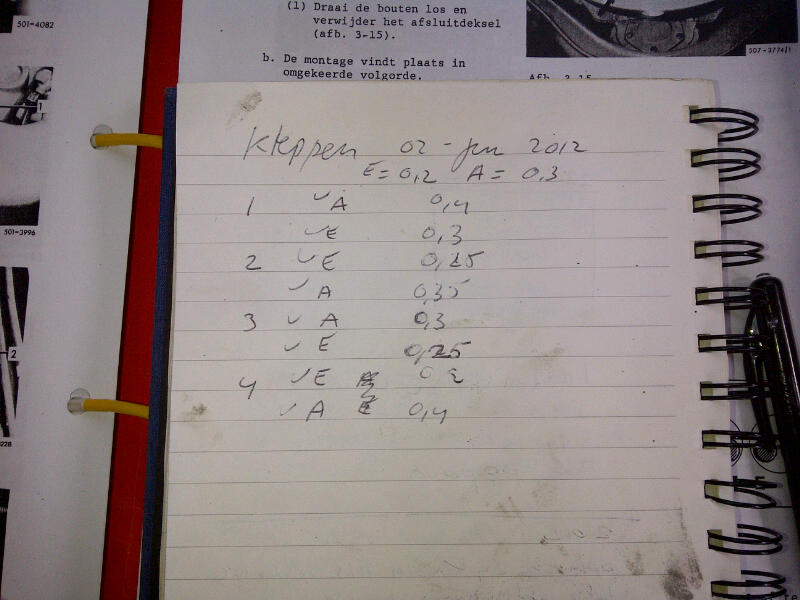 501-4082
(1) Draai de bouten los en
verwijder het afsluitdeksel
(afb. 3-15).
b. De montage vindt plaats in
omgekeerde volgorde.
507-3774/1
Afb. 3-15
1
501-3996
2
Kleppen 02-jun 2012
E=0,2 A=0,3
1 ✓A 0,4
✓E 0,3
2 ✓E 0,25
✓A 0,35
3 ✓A 0,3
✓E 0,25
4 ✓E 0,2
✓A 0,4